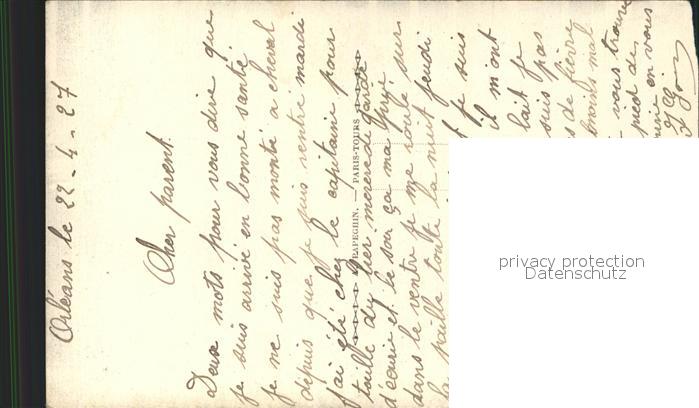 Orléans le 22-4-27
Cher parent.
Deux mots pour vous dire que
je suis arrivé en bonne santé
je ne suis pas monté a cheval
depuis que je suis rentré mardi
j'ai été chez le capitaine pour
hier mercredi garde
d'écurie et le soir ça ma
dans le ventre je me roule sur
la paille toute la nuit jeudi
je suis
il m'ont
lait je
suis pas
de fièvre
mal
vous trouve
pied de
en vous
PAPEGHIN. — PARIS-TOURS
privacy protection
Datenschutz